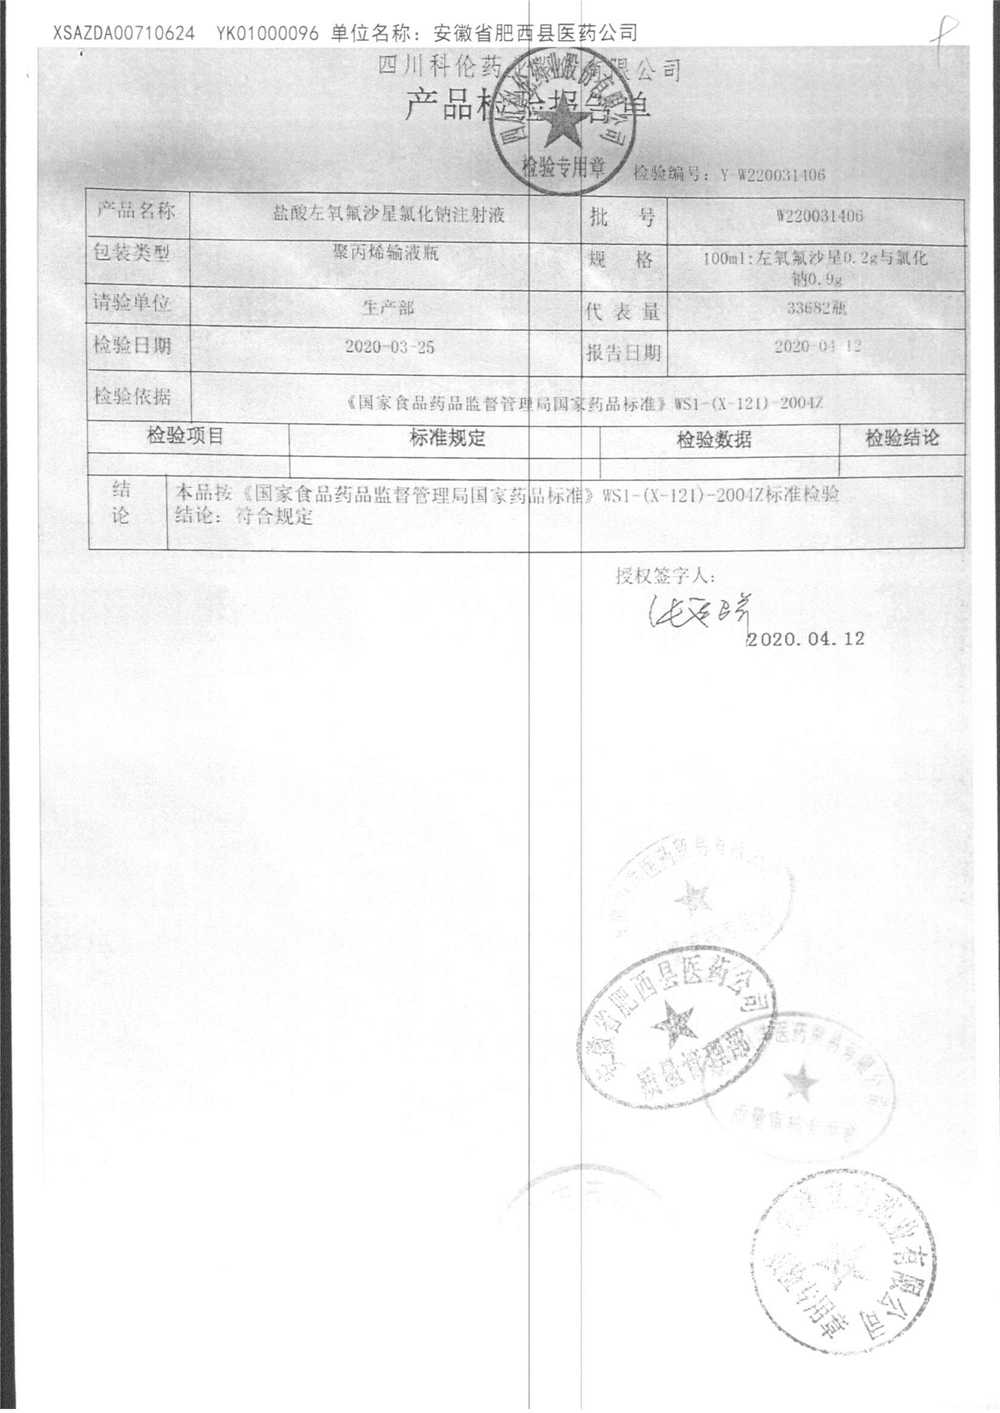 XSAZDA00710624 YK01000096 单位名称：安徽省肥西县医药公司
四川科伦药 有限公司
产品检验报告单
四川科伦药业股份有限公司
检验专用章
检验编号：Y-W220031406
产品名称 盐酸左氧氟沙星氯化钠注射液 批 号 W220031406
包装类型 聚丙烯输液瓶 规 格 100ml:左氧氟沙星0.2g与氯化
钠0.9g
请验单位 生产部 代 表 量 33682瓶
检验日期 2020-03-25 报告日期 2020-04-12
检验依据 《国家食品药品监督管理局国家药品标准》WS1-(X-121)-2004Z
检验项目 标准规定 检验数据 检验结论
结 本品按《国家食品药品监督管理局国家药品标准》WS1-(X-121)-2004Z标准检验
论 结论：符合规定
授权签字人：
2020.04.12
安徽省肥西县医药公司
质量管理部
有限公司